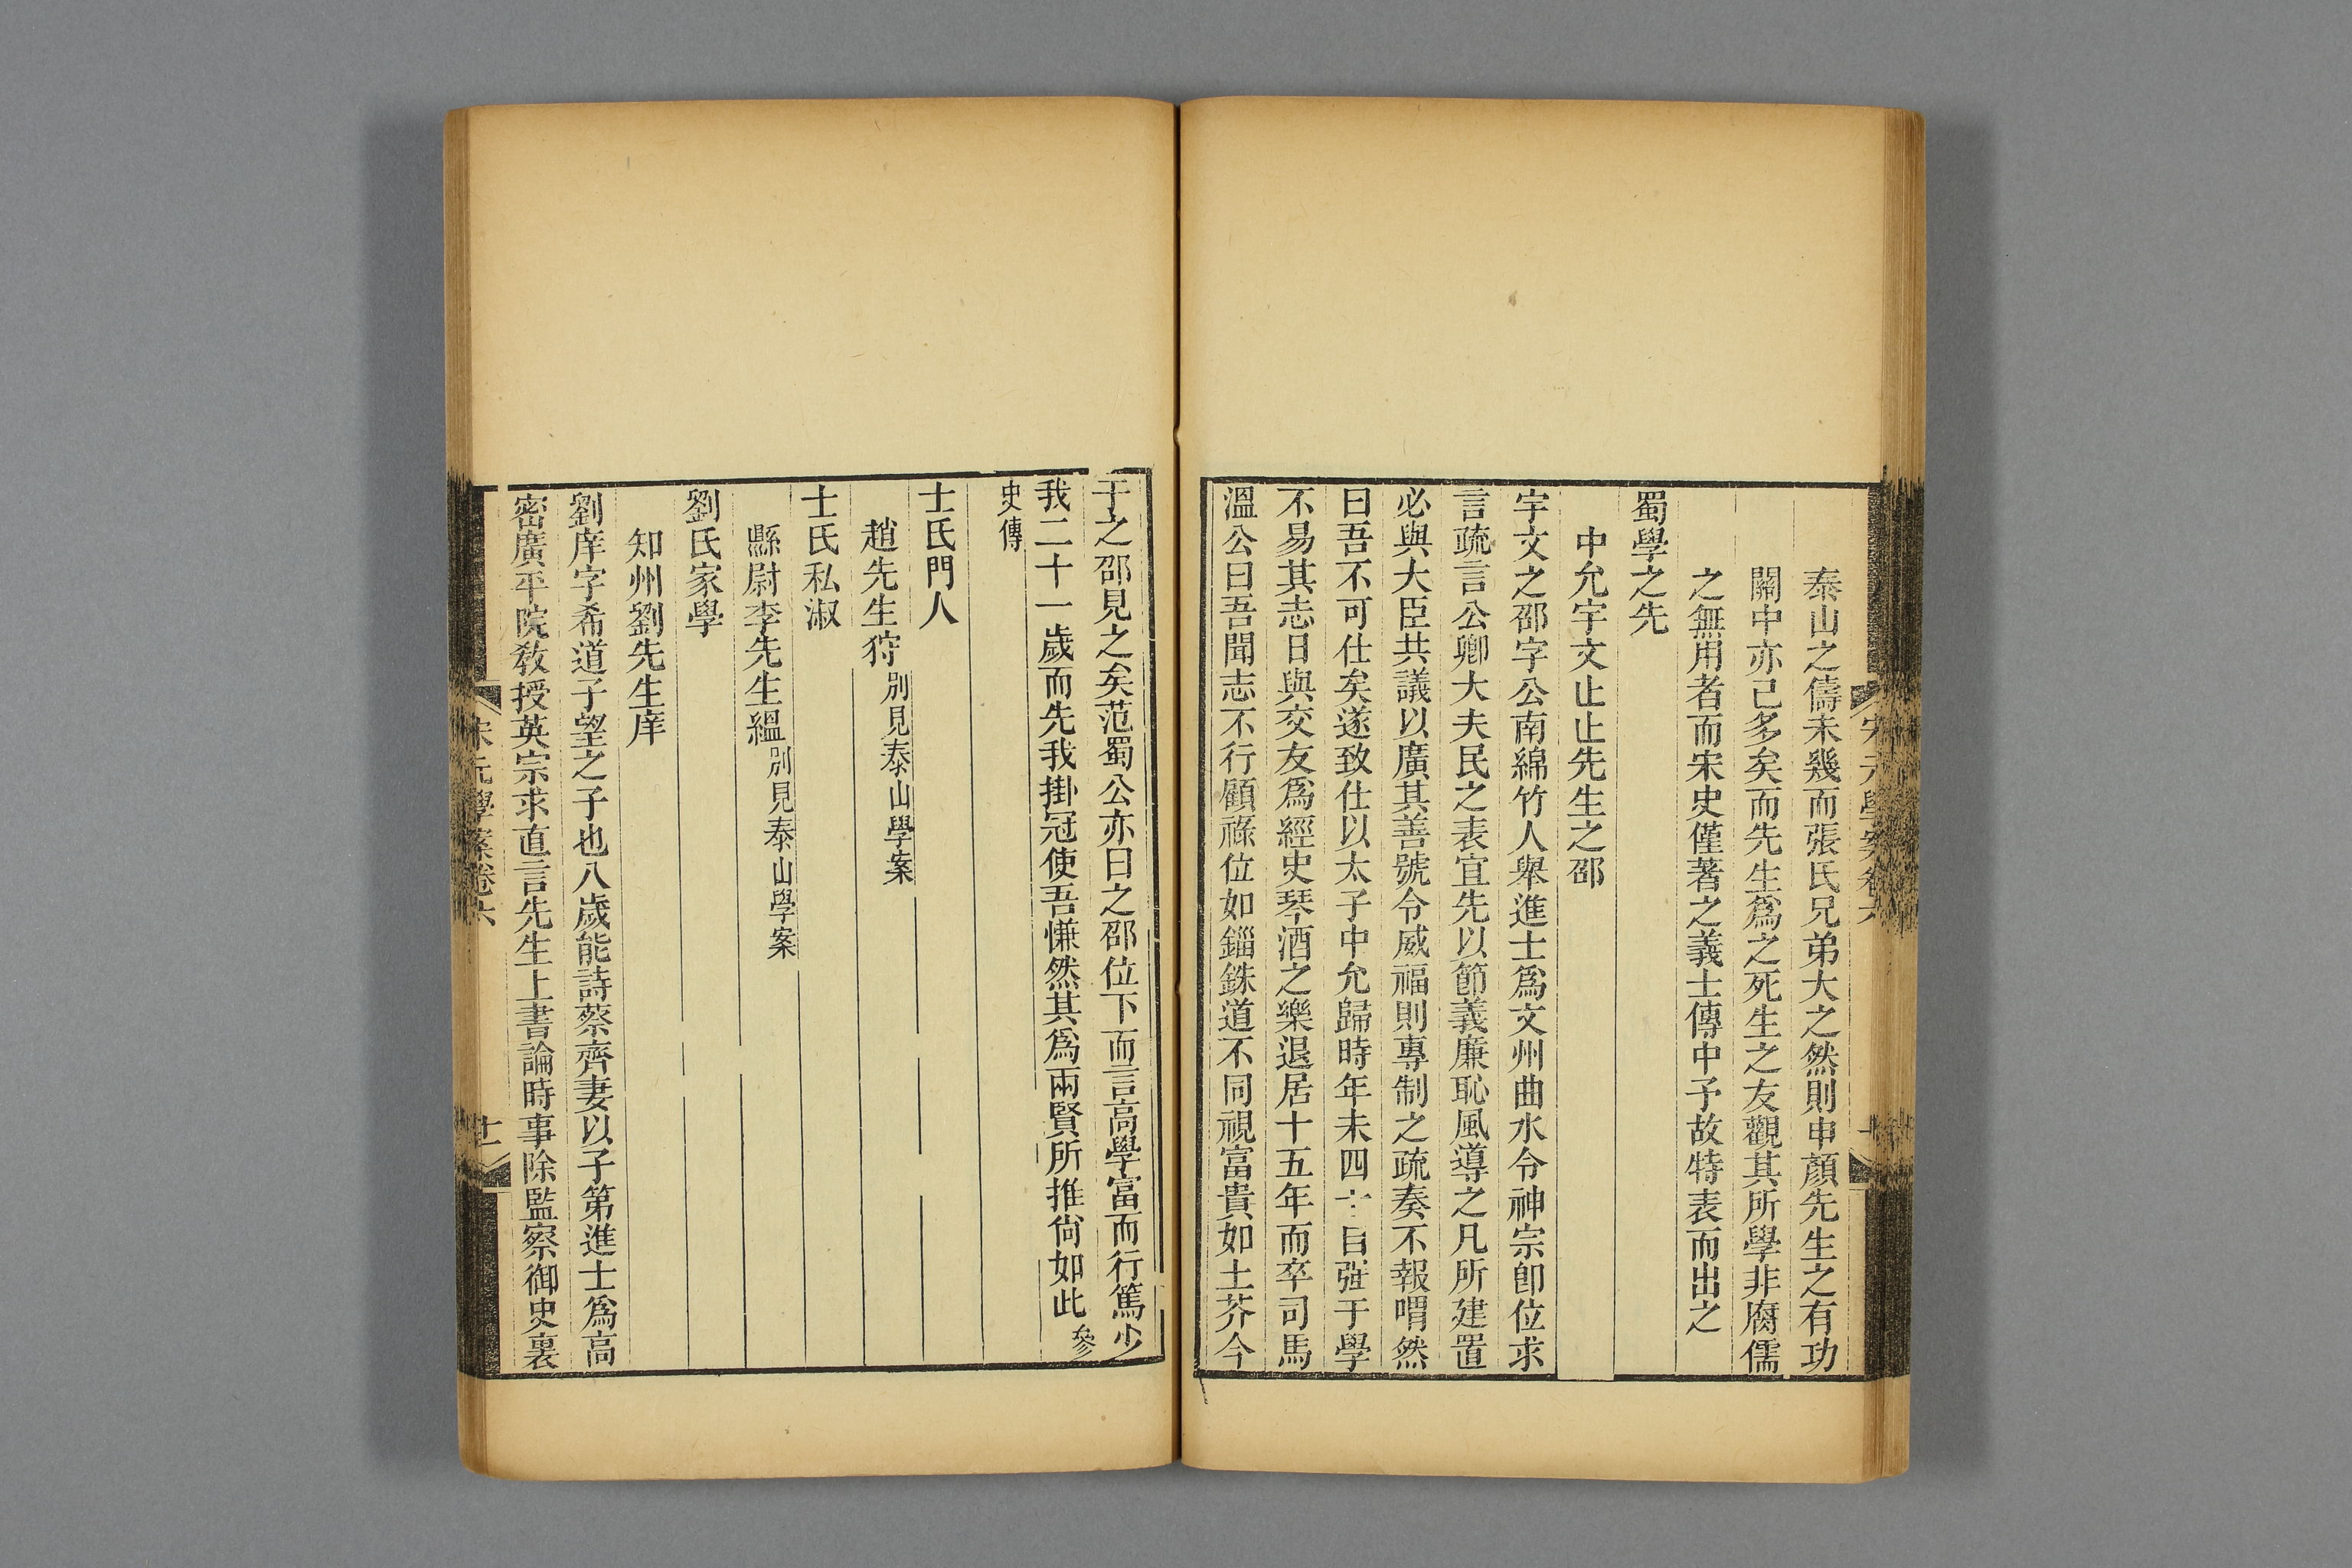 泰山之儔未幾而張氏兄弟大之然則申顏先生之有功
關中亦已多矣而先生爲之死生之友觀其所學非腐儒
之無用者而宋史僅著之義士傳中予故特表而出之
蜀學之先
中允宇文止止先生之邵
宇文之邵字公南綿竹人舉進士爲文州曲水令神宗卽位求
言疏言公卿大夫民之表宜先以節義廉恥風導之凡所建置
必與大臣共議以廣其善號令威福則專制之疏奏不報喟然
曰吾不可仕矣遂致仕以太子中允歸時年未四十自强于學
不易其志日與交友爲經史琴酒之樂退居十五年而卒司馬
溫公曰吾聞志不行顧祿位如錙銖道不同視富貴如土芥今
于之邵見之矣范蜀公亦曰之邵位下而言高學富而行篤少
我二十一歲而先我掛冠使吾慊然其爲兩賢所推尙如此參
史傳
士氏門人
趙先生狩別見泰山學案
士氏私淑
縣尉李先生縕別見泰山學案
劉氏家學
知州劉先生庠
劉庠字希道子望之子也八歲能詩蔡齊妻以子第進士爲高
密廣平院敎授英宗求直言先生上書論時事除監察御史裏
宋元學案卷六